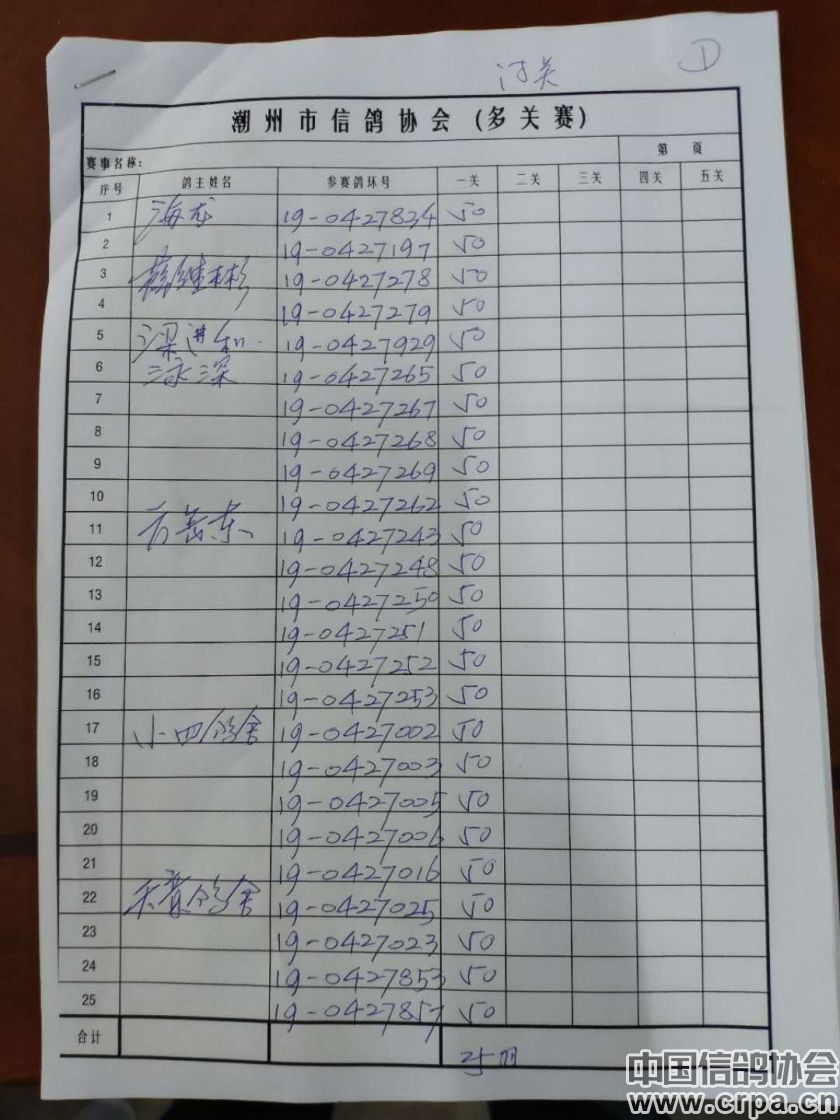 过关 1
潮州市信鸽协会(多关赛)
赛事名称: 第 页
序号 鸽主姓名 参赛鸽环号 一关 二关 三关 四关 五关
1 海龙 19-0427834 50
2 19-0427197 50
3 19-0427278 50
4 19-0427279 50
5 梁进和 19-0427929 50
6 泳深 19-0427265 50
7 19-0427267 50
8 19-0427268 50
9 19-0427269 50
10 19-0427262 50
11 方岳东 19-0427243 50
12 19-0427248 50
13 19-0427250 50
14 19-0427251 50
15 19-0427252 50
16 19-0427253 50
17 小四鸽舍 19-0427002 50
18 19-0427003 50
19 19-0427005 50
20 19-0427006 50
21 19-0427016 50
22 鸽舍 19-0427025 50
23 19-0427023 50
24 19-0427853 50
25 19-0427857 50
合计 25羽
中国信鸽协会
www.crpa.cn